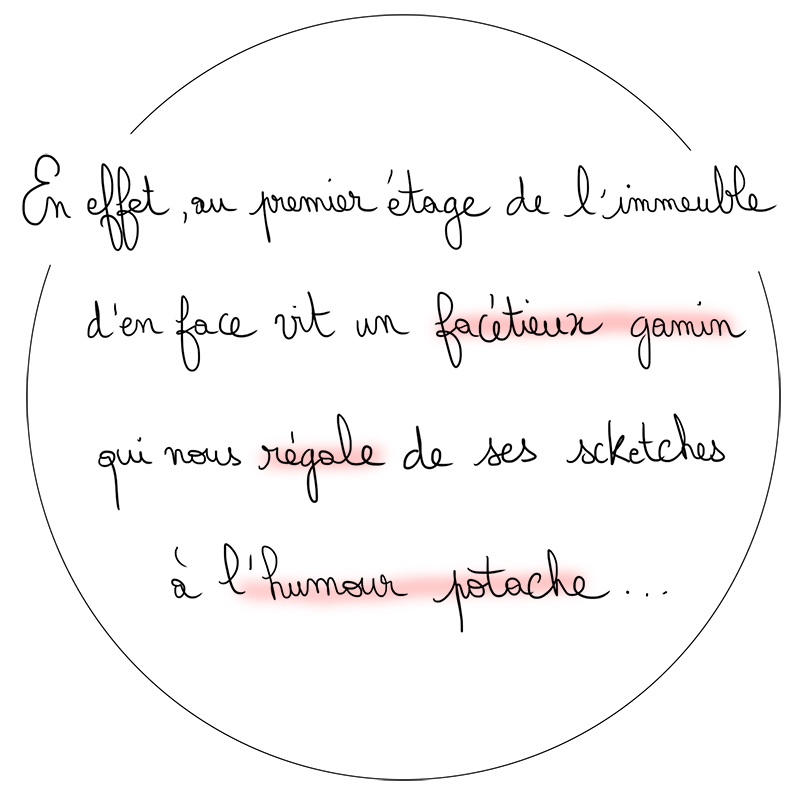 En effet, au premier étage de l'immeuble
d'en face vit un facétieux gamin
qui nous régale de ses scketches
à l'humour potache...